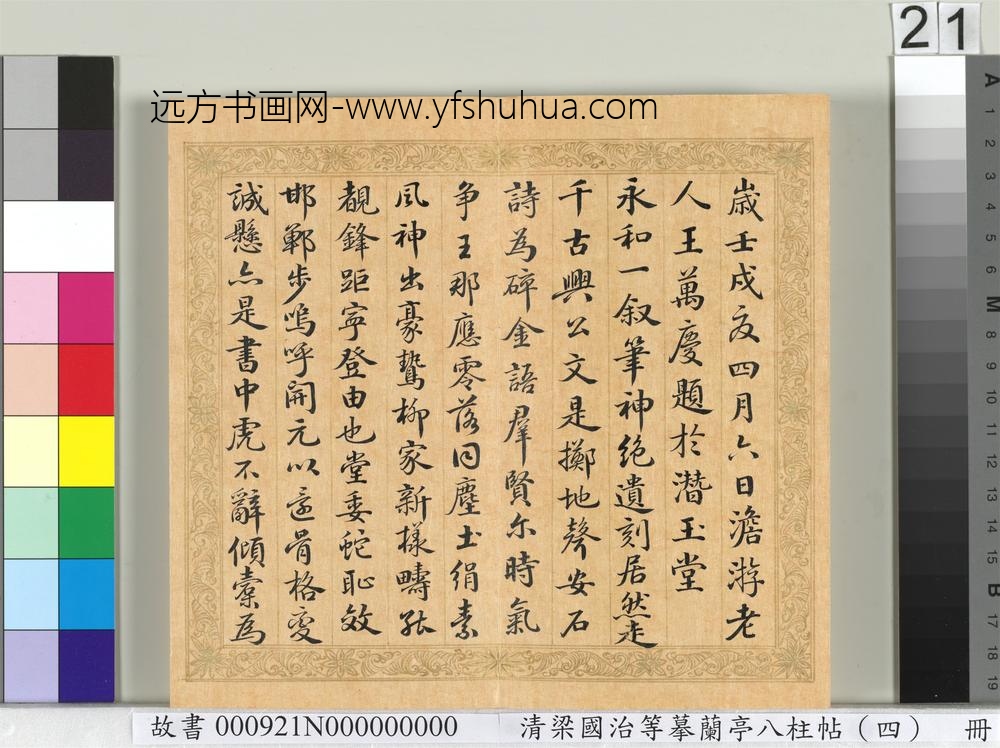 21
远方书画网-www.yfshuhua.com
歲壬戌夏四月六日澹游老
人王萬慶題於潛玉堂
永和一叙筆神絶遺刻居然走
千古興公文是擲地聲安石
詩為碎金語羣賢尔時氣
争王那應零落同塵土絹素
風神出豪鷙柳家新樣疇能
覩鋒距寧登由也堂委蛇恥效
邯鄲步嗚呼開元以還骨格變
誠懸亦是書中虎不辭傾橐為
A 1 2 3 4 5 6 M 8 9 10 11 12 13 14 15 B 17 18 19
故書 000921N000000000 清梁國治等摹蘭亭八柱帖（四） 冊